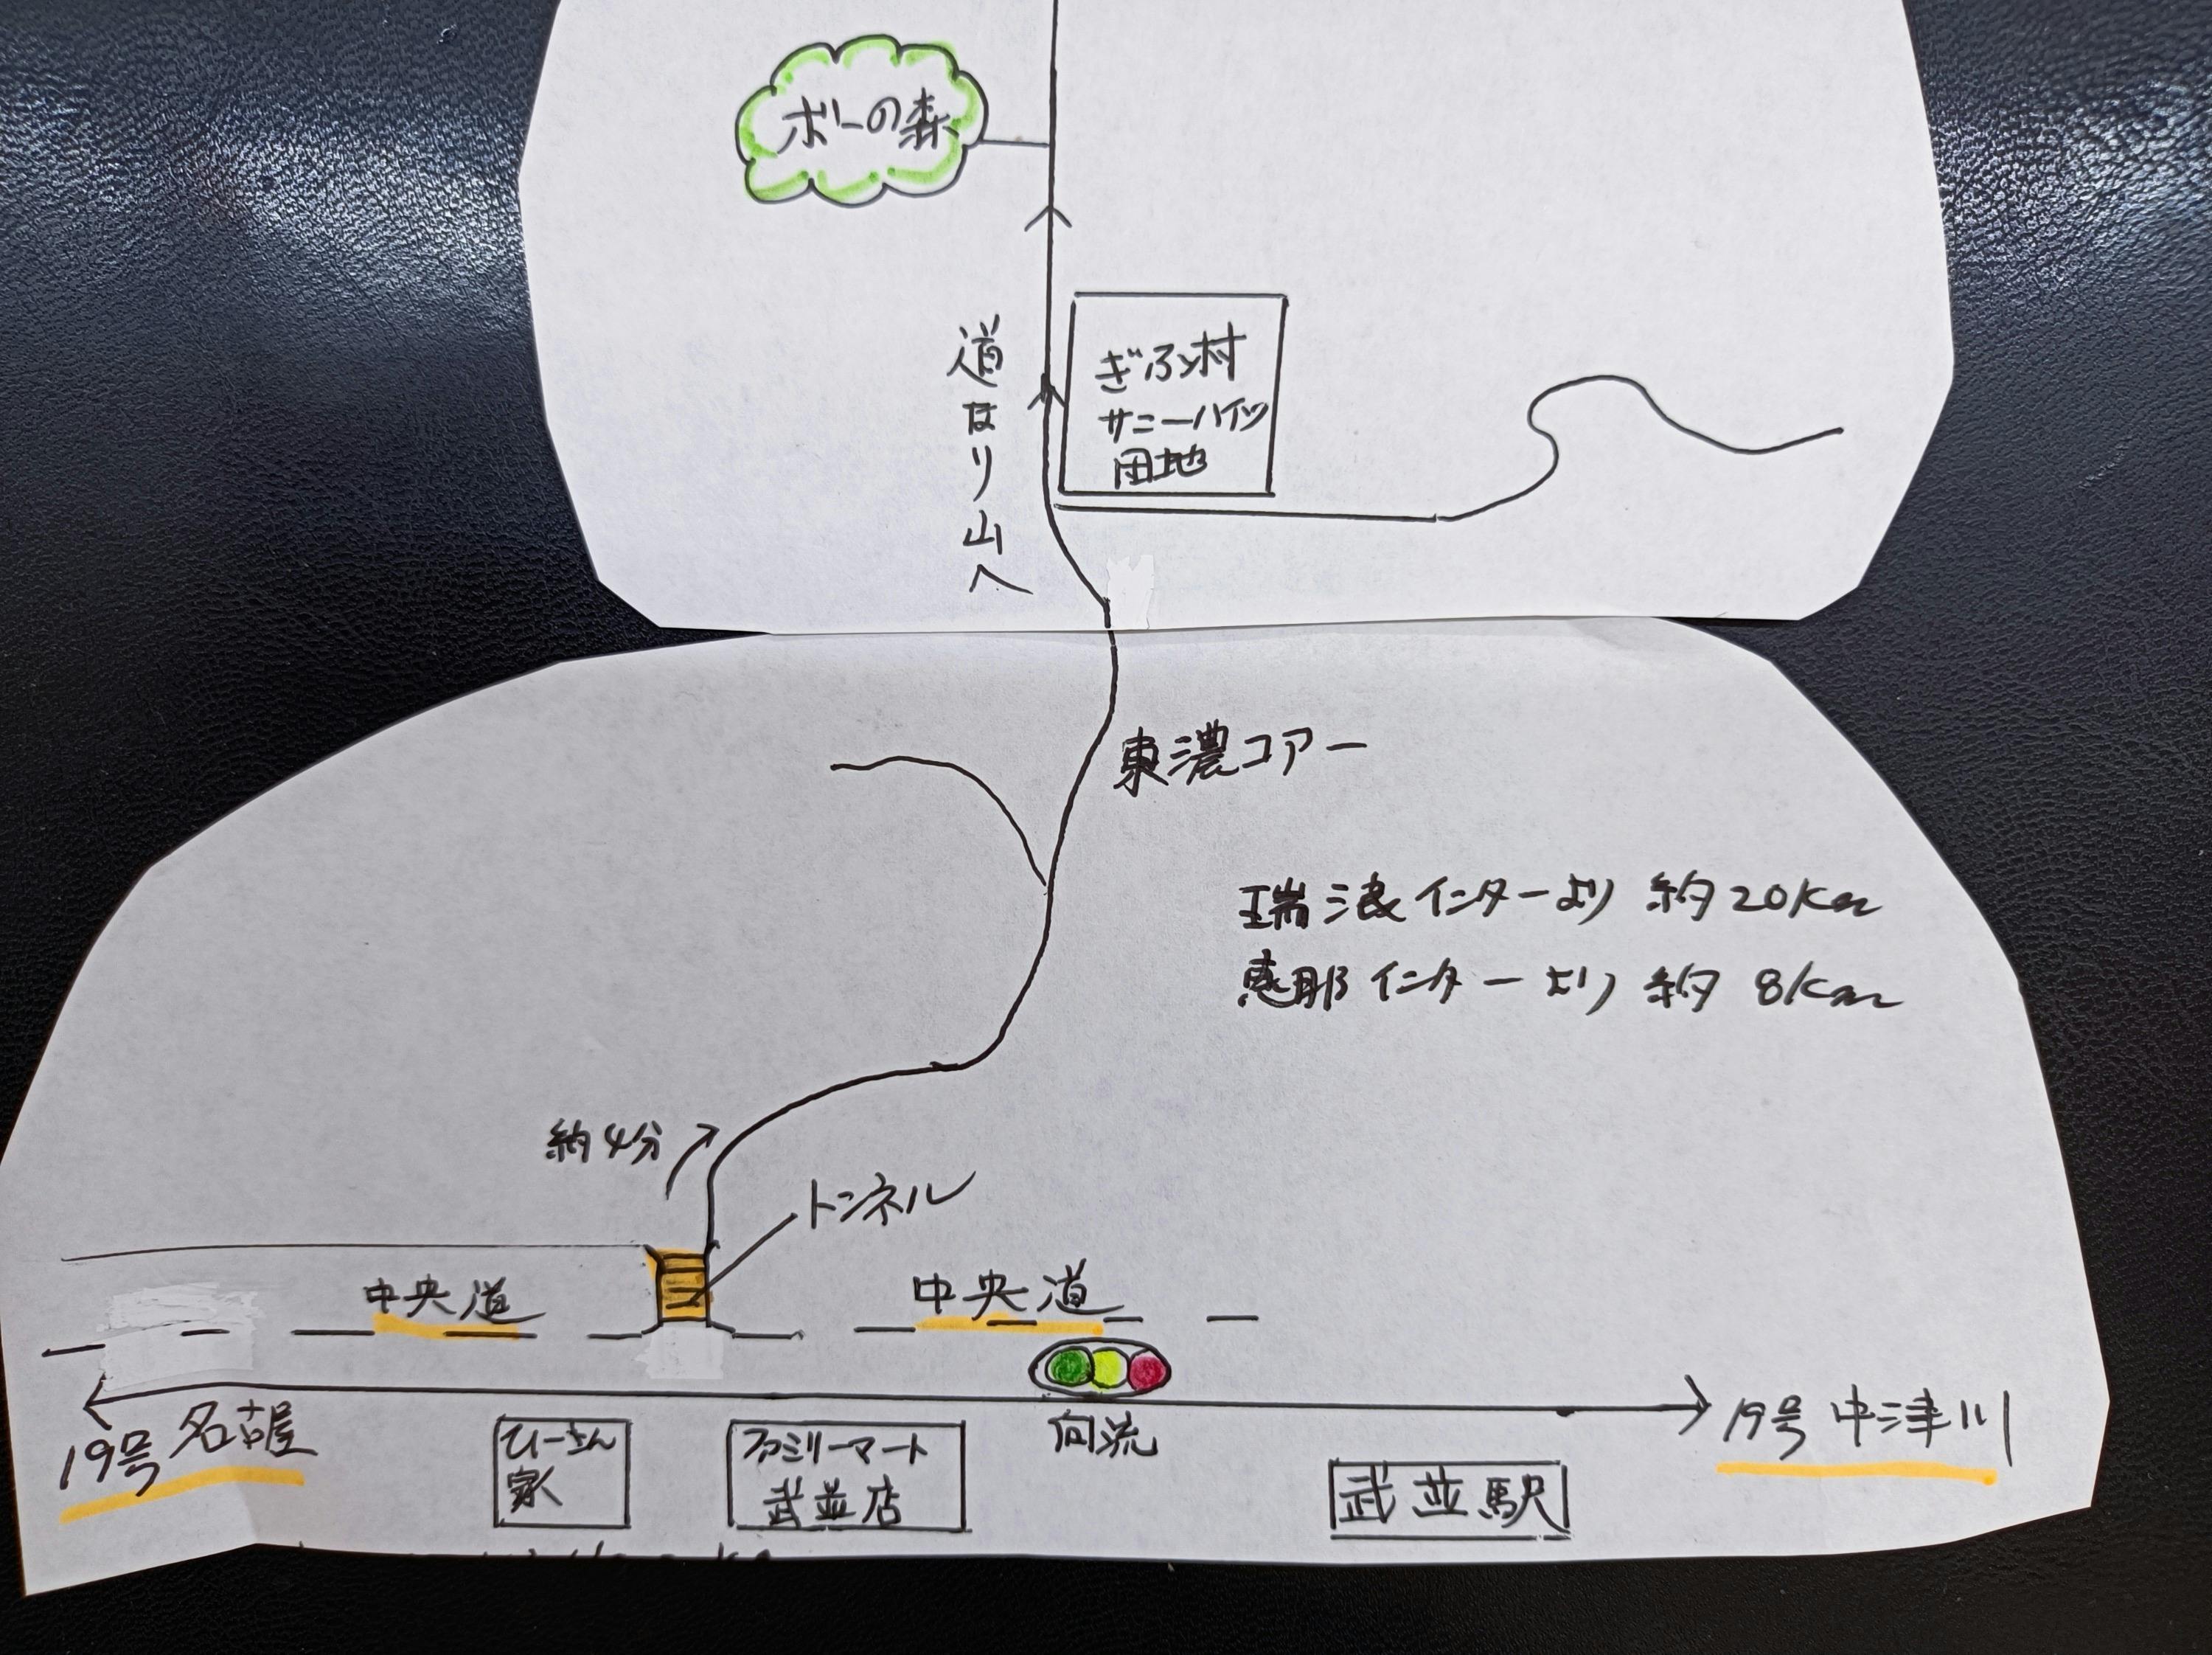 ボリーの森
道なり山へ
ぎふ村
サニーハイツ
団地
東濃コアー
瑞浪インターより 約20Km
恵那インターより 約 8Km
約4分
トンネル
中央道
中央道
19号 名古屋
ひーさん
家
ファミリーマート
武並店
向流
武並駅
19号 中津川